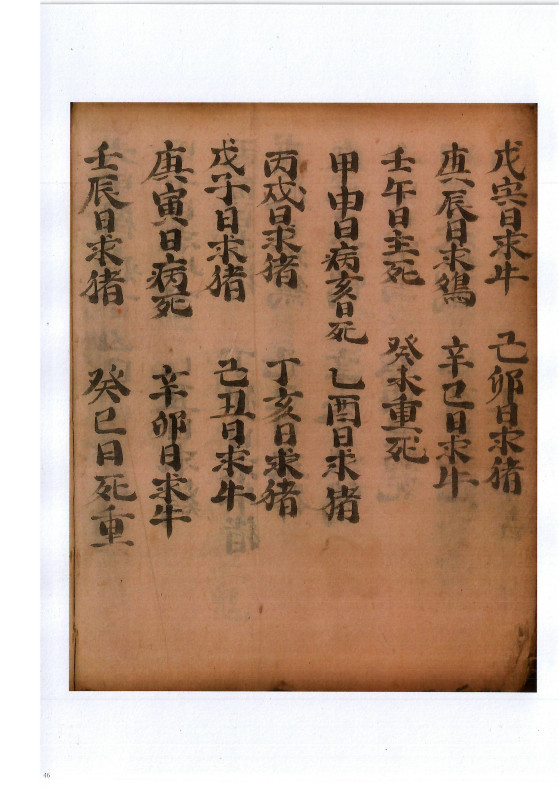 戊寅日求牛　己卯日求猪
庚辰日求鷄　辛巳日求牛
壬午日主死　癸未重死
甲申日病亥日死　乙酉日求猪
丙戌日求猪　丁亥日求猪
戊子日求猪　己丑日求牛
庚寅日病死　辛卯日求牛
壬辰日求猪　癸巳日死重
46